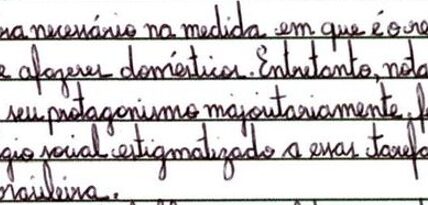 na necessário na medida em que é o re
e afazeres domésticos. Entretanto, nota
seu protagonismo majoritariamente, f
gio social estigmatizado a essas tarefa
brasileira.